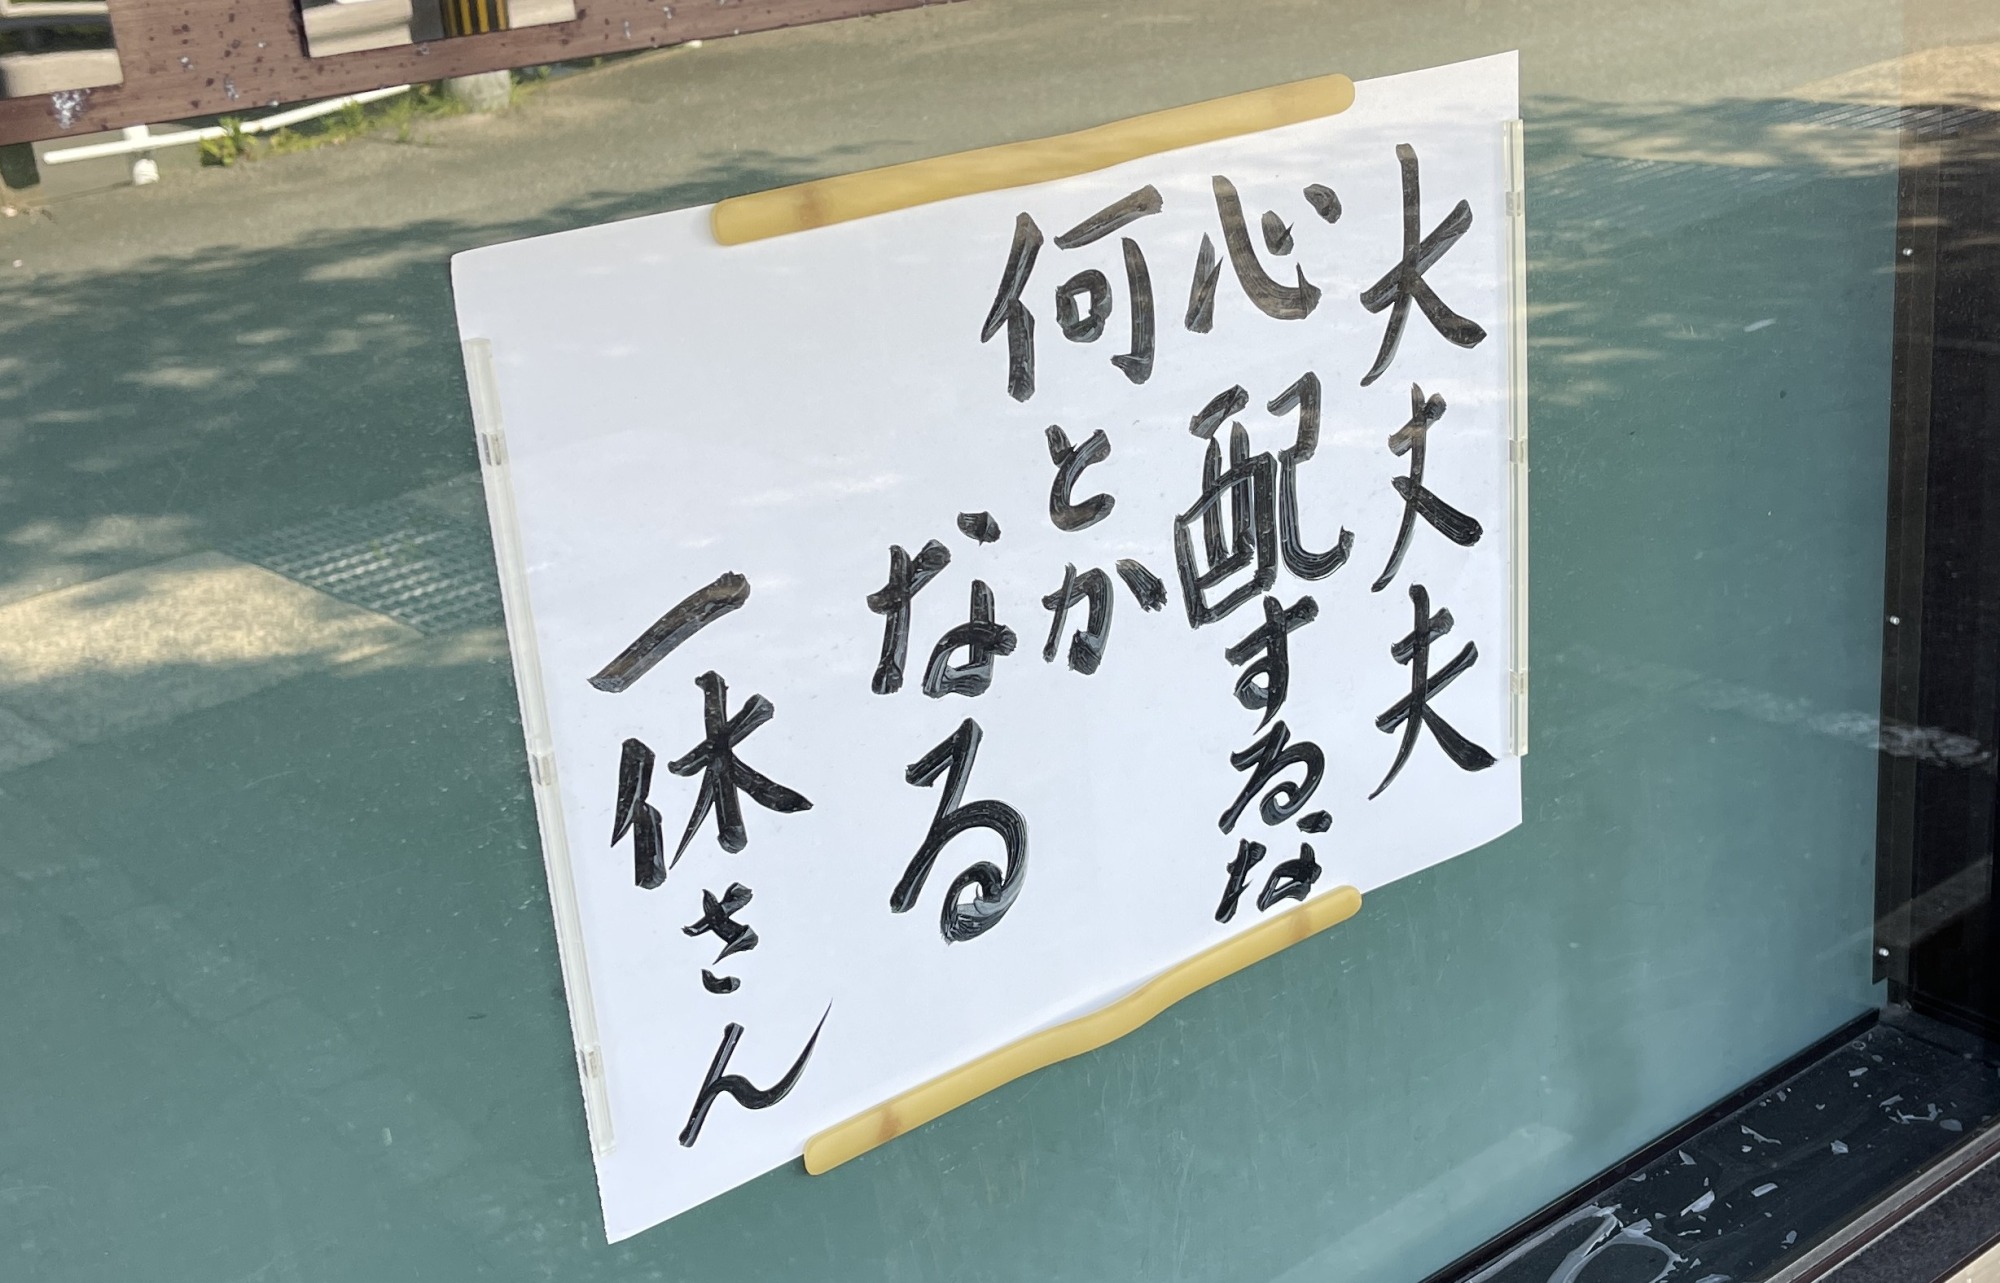 大丈夫
心配するな
何とか
なる
一休さん